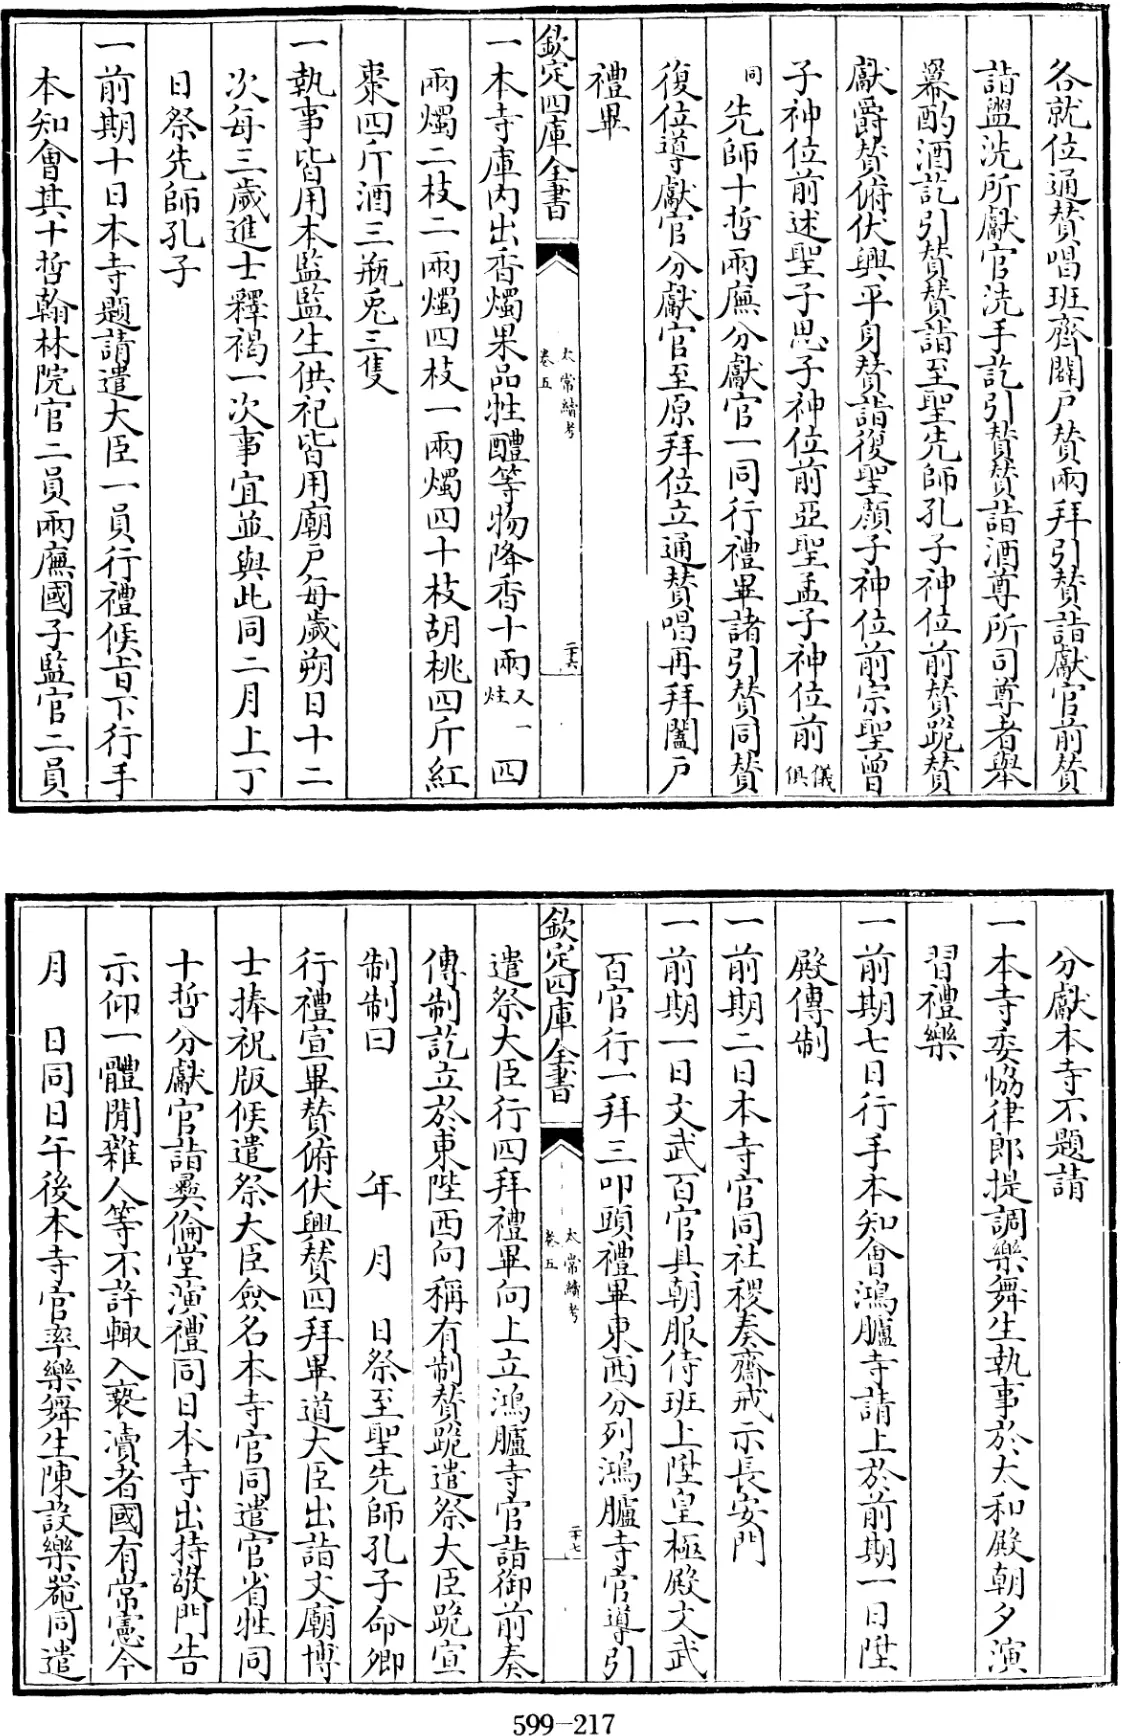 各就位通贊唱班齊闢戶贊兩拜引贊詣獻官前贊
詣盥洗所獻官洗手訖引贊贊詣酒尊所司尊者舉
冪酌酒訖引贊贊詣至聖先師孔子神位前贊跪贊
獻爵贊俯伏興平身贊詣復聖顏子神位前宗聖曾
子神位前述聖子思子神位前亞聖孟子神位前儀俱
同先師十哲兩廡分獻官一同行禮畢諸引贊同贊
復位導獻官分獻官至原拜位立通贊唱再拜闔戶
禮畢
欽定四庫全書
太常續考
卷五
二十六
一本寺庫內出香燭果品牲醴等物降香十兩又一炷四
兩燭二枝二兩燭四枝一兩燭四十枝胡桃四斤紅
棗四斤酒三瓶兎三隻
一執事皆用本監監生供祀皆用廟戶每歲朔日十二
次每三歲進士釋褐一次事宜並與此同二月上丁
日祭先師孔子
一前期十日本寺題請遣大臣一員行禮候旨下行手
本知會其十哲翰林院官二員兩廡國子監官二員
分獻本寺不題請
一本寺委協律郎提調樂舞生執事於太和殿朝夕演
習禮樂
一前期七日行手本知會鴻臚寺請上於前期一日陞
殿傳制
一前期二日本寺官同社稷奏齋戒示長安門
一前期一日文武百官具朝服侍班上陞皇極殿文武
百官行一拜三叩頭禮畢東西分列鴻臚寺官導引
欽定四庫全書
太常續考
卷五
二十七
遣祭大臣行四拜禮畢向上立鴻臚寺官詣御前奏
傳制訖立於東陛西向稱有制贊跪遣祭大臣跪宣
制制曰 年 月 日祭至聖先師孔子命卿
行禮宣畢贊俯伏興贊四拜畢道大臣出詣文廟博
士捧祝版候遣祭大臣僉名本寺官同遣官省牲同
十哲分獻官詣彞倫堂演禮同日本寺出持敬門告
示仰一體閒雜人等不許輙入褻瀆者國有常憲今
月 日同日午後本寺官率樂舞生陳設樂器同遣
599-217